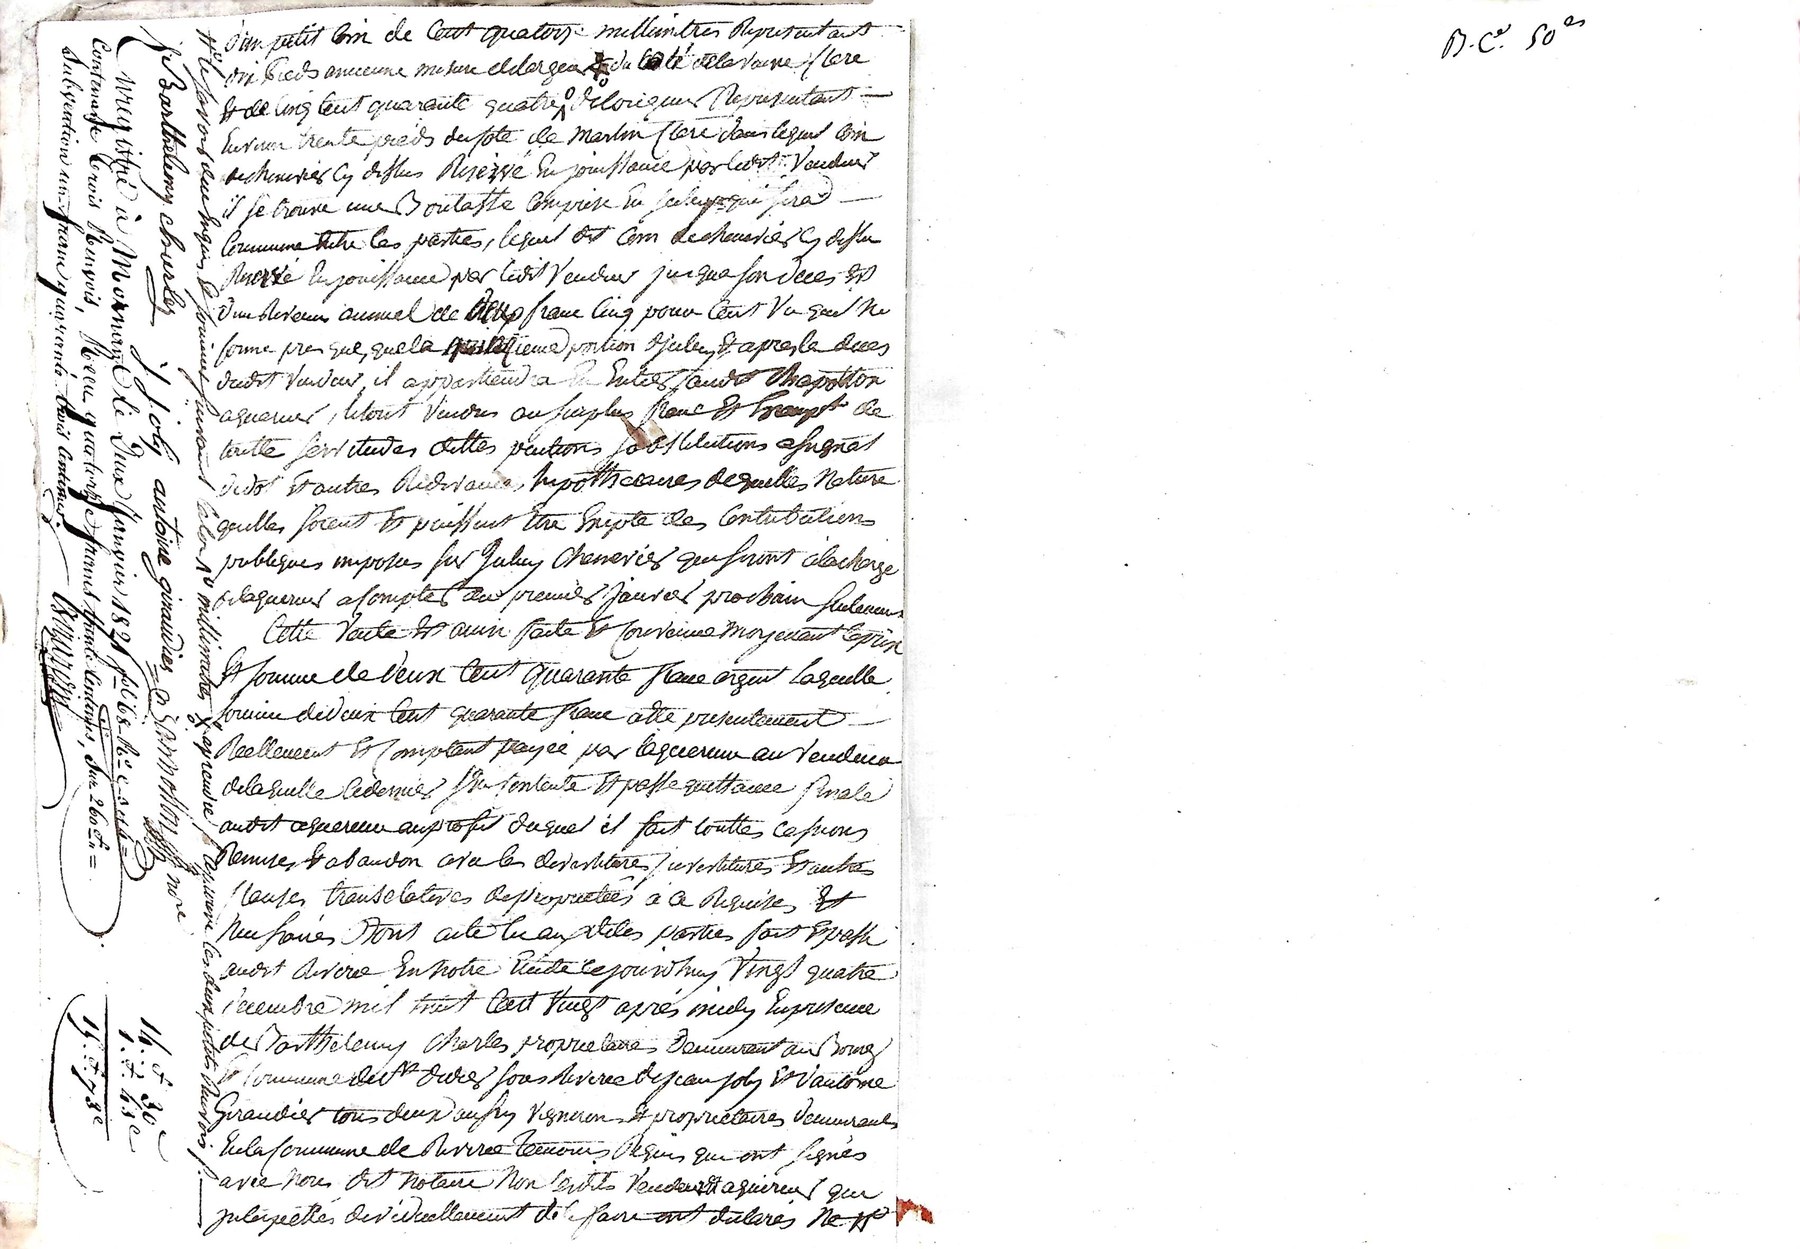 d'un petit coin de Cent quatorze millimitres Representant
dix Pieds ancienne mesure de largeur du Coté de la Vaure Clere
et de Cinq Cent quarante quatre de longueur Representant
Environ trente pieds du Coté de Martin Clere dans lequel Coin
de chenevier Cy dessus Reservé En jouissance par ledit Vendeur
il se trouve une Boutasse Comprise En qui sera
Commune entre les parties, lequel dit Coin de chenevier Cy dessus
Reservé En jouissance par ledit Vendeur jusqua son deces est
d'un Revenu annuel de deux franc Cinq pour Cent Vu quil ne
forme presque, que la portion d'Iceluy, Et apres le deces
dudit Vendeur, il appartiendra En Entier audit Chapotton
aquereur, letout Vendus au surplus franc Et Exempt de
toutte servitudes dettes pentions substitutions
Et autres Redevances hipothecaires de quelles Nature
quelles soient Et puissent être Excepté des Contributions
publiques imposés sur Iceluy Chenevier qui seront à la charge
de laquereur a Compter du premier Janvier prochain seulement
Cette Vente Est ainsi faite Et Convenue moyenant le prix
Et somme de deux Cent quarante franc argent laquelle
somme de deux Cent quarante franc a Eté presentement
Reellement Et Comptant payée par laquereur au Vendeur
de laquelle Ce dernier s'en Contente Et passe quittance finale
audit aquereur au profit duquel il fait touttes Cessions
Remises Et abandon avec les devestitures investitures Et autres
Clauses translatives de proprietées à ce Requises Et
Necessaires Dont acte lu aux dites parties fait Et passé
audit Riverie En notre Etude Ce jourdhuy Vingt quatre
decembre mil huit Cent Vingt après midy En presence
de Barthelemy Charles proprietaire Demeurant au Bourg
Et Commune de St didier sous Riverie de jean joly Et d'antoine
Giraudier tous deux aussy Vignerons Et proprietaires demeurants
En la Commune de Riverie temoins Requis qui ont signés
avec Nous dit notaire Non lesdits Vendeur Et aquereur qui
interpellés de le faire ont declarés Ne
le savoir de ce Enquis &
Barthelemy charles j joly antoine giraudier nore
Enregistré à Mornant le Deux Janvier 1821 fol. 68 Ro c.
Contenant trois Renvois, Recu quatorze francs trente Centimes, Sur 260 f.
Subvention un franc quarante trois Centimes.
14. f 30 c
1. f 43 c
15. f 73 c
B. Ce. 50 es